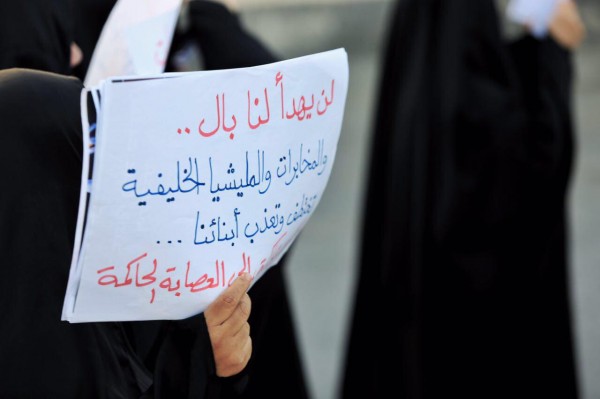 لن يهدأ لنا بال ..
والمخابرات والمليشيا الخليفية
تختطف وتعذب أبنائنا ...
العصابة الحاكمة